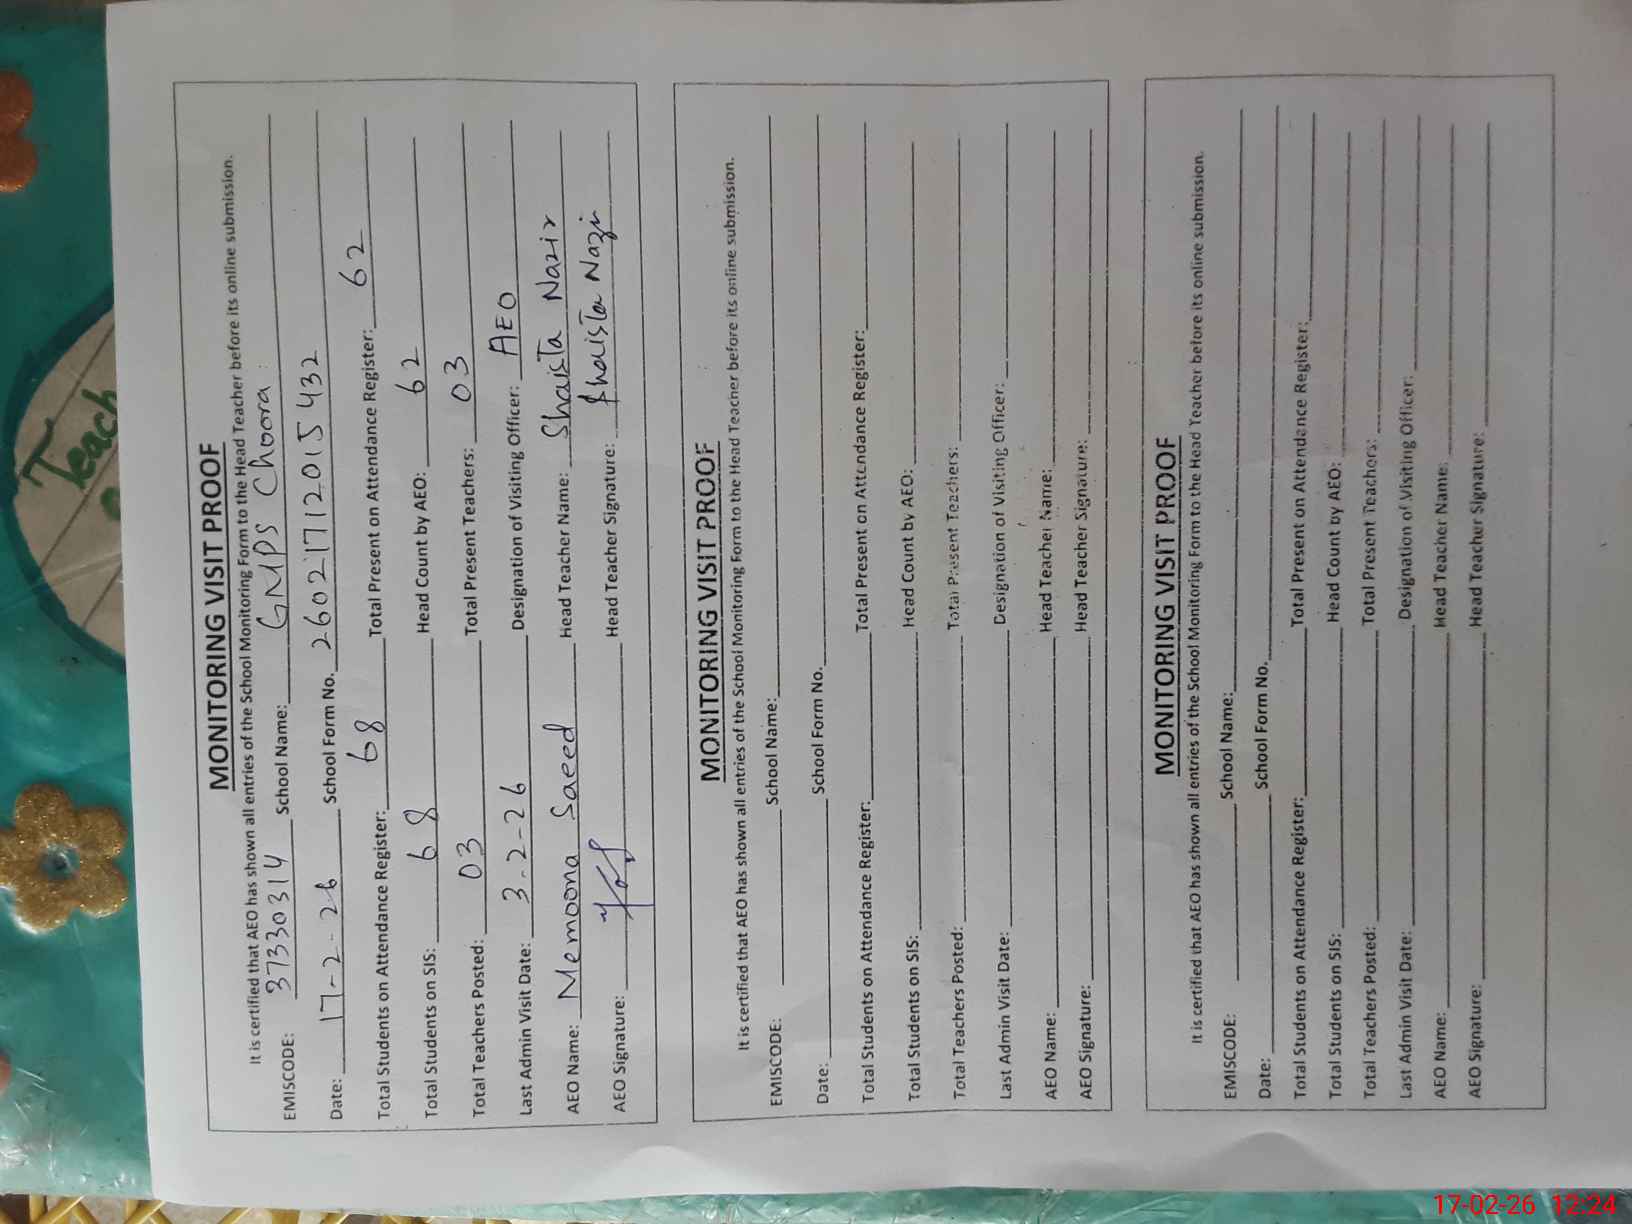 Teach
MONITORING VISIT PROOF
It is certified that AEO has shown all entries of the School Monitoring Form to the Head Teacher before its online submission.
EMISCODE: 37330314 School Name: GMPS Choora
Date: 17-2-26 School Form No. 26021712015432
Total Students on Attendance Register: 68 Total Present on Attendance Register: 62
Total Students on SIS: 68 Head Count by AEO: 62
Total Teachers Posted: 03 Total Present Teachers: 03
Last Admin Visit Date: 3-2-26 Designation of Visiting Officer: AEO
AEO Name: Memoona Saeed Head Teacher Name: Shaista Nazir
AEO Signature: Head Teacher Signature: Shaista Nazir
MONITORING VISIT PROOF
It is certified that AEO has shown all entries of the School Monitoring Form to the Head Teacher before its online submission.
EMISCODE: School Name:
Date: School Form No.
Total Students on Attendance Register: Total Present on Attendance Register:
Total Students on SIS: Head Count by AEO:
Total Teachers Posted: Total Present Teachers:
Last Admin Visit Date: Designation of Visiting Officer:
AEO Name: Head Teacher Name:
AEO Signature: Head Teacher Signature:
MONITORING VISIT PROOF
It is certified that AEO has shown all entries of the School Monitoring Form to the Head Teacher before its online submission.
EMISCODE: School Name:
Date: School Form No.
Total Students on Attendance Register: Total Present on Attendance Register:
Total Students on SIS: Head Count by AEO:
Total Teachers Posted: Total Present Teachers:
Last Admin Visit Date: Designation of Visiting Officer:
AEO Name: Head Teacher Name:
AEO Signature: Head Teacher Signature:
17-02-26 12:24